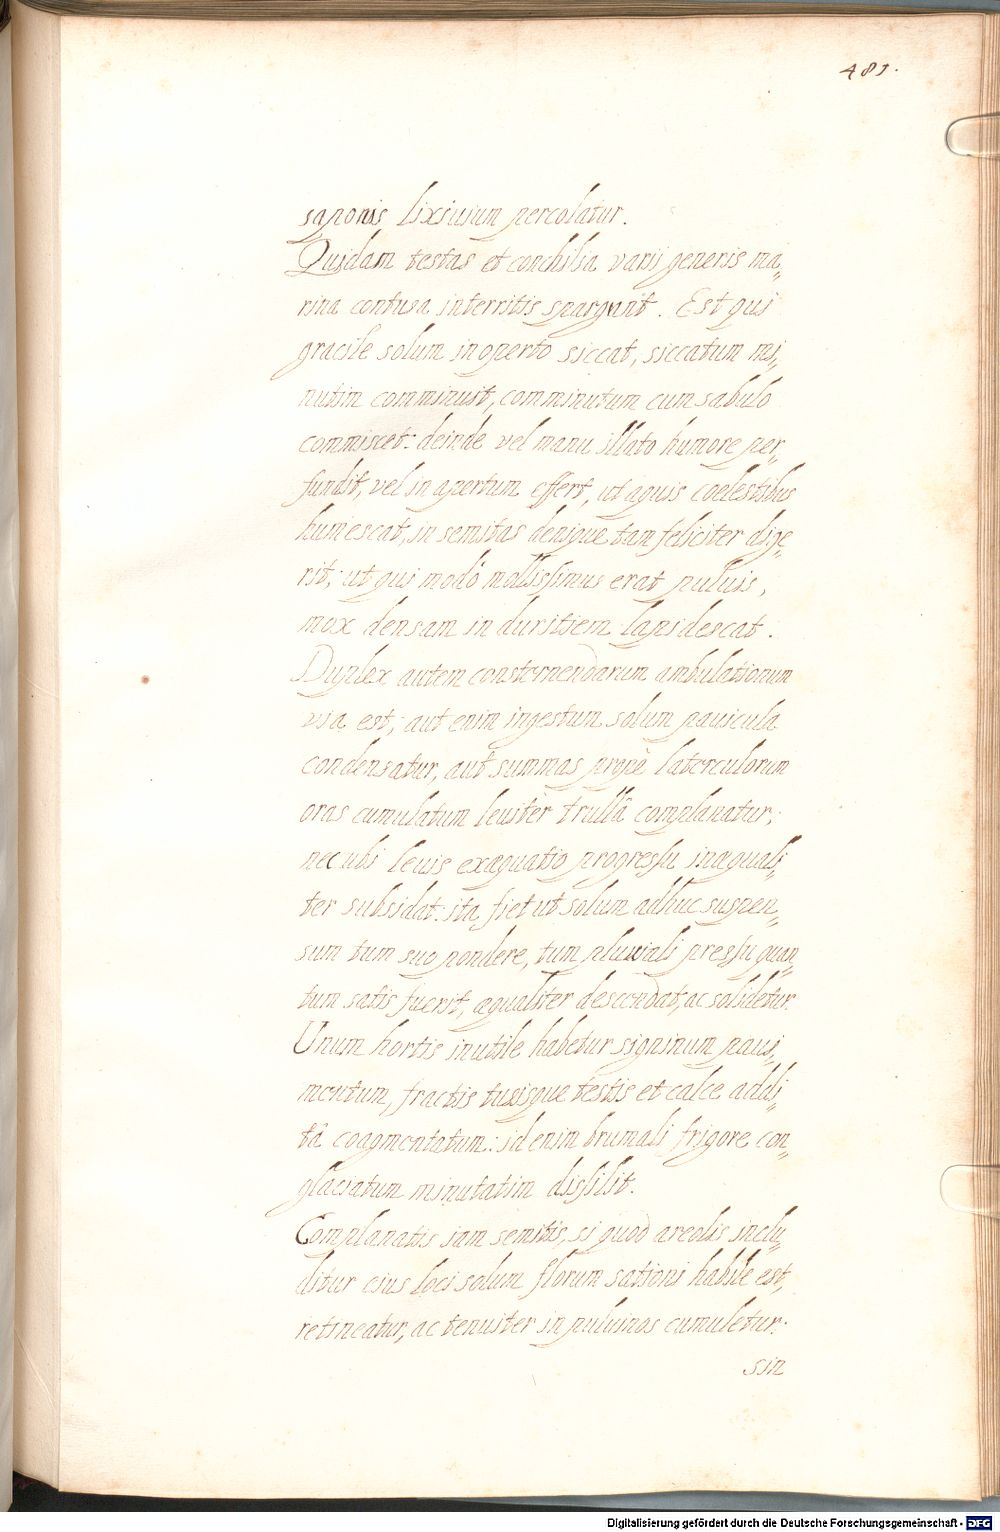 481.
saponis lixiuium percolatur.
Quidam testas et conchilia varii generis ma„
rina contusa interritis spargunt. Est qui
gracile solum in operto siccat, siccatum mi„
nutim comminuit, comminutum cum sabulo
commiscet: deinde vel manu illato humore per„
fundit, vel in apertum effert, ut aquis coelestibus
humescat, in semitas denique tam feliciter dige„
rit; ut qui modò mollissimus erat puluis,
mox densam in duritiem lapidescat.
Duplex autem consternendarum ambulationum
via est; aut enim ingestum solum pauicula
condensatur, aut summas propè laterculorum
oras cumulatum leuitèr trullâ complanatur;
necubi leuis exaquatio progressu inæquali„
ter subsidat: ita fiet ut solum adhuc suspen„
sum tum suo pondere, tum pluuiali pressu quan„
tum satis fuerit, æqualiter descendat, ac solidetur.
Unum hortis inutile habetur signinum paui„
mentum, fractis tusisque testis et calce addi„
tâ coagmentatum: id enim brumali frigore con„
glaciatum minutatim dissilit.
Complanatis iam semitis, si quod areolis inclu„
ditur eius loci solum florum sationi habile est,
retineatur, ac tenuiter in puluinos cumuletur:
sin
Digitalisierung gefördert durch die Deutsche Forschungsgemeinschaft - DFG